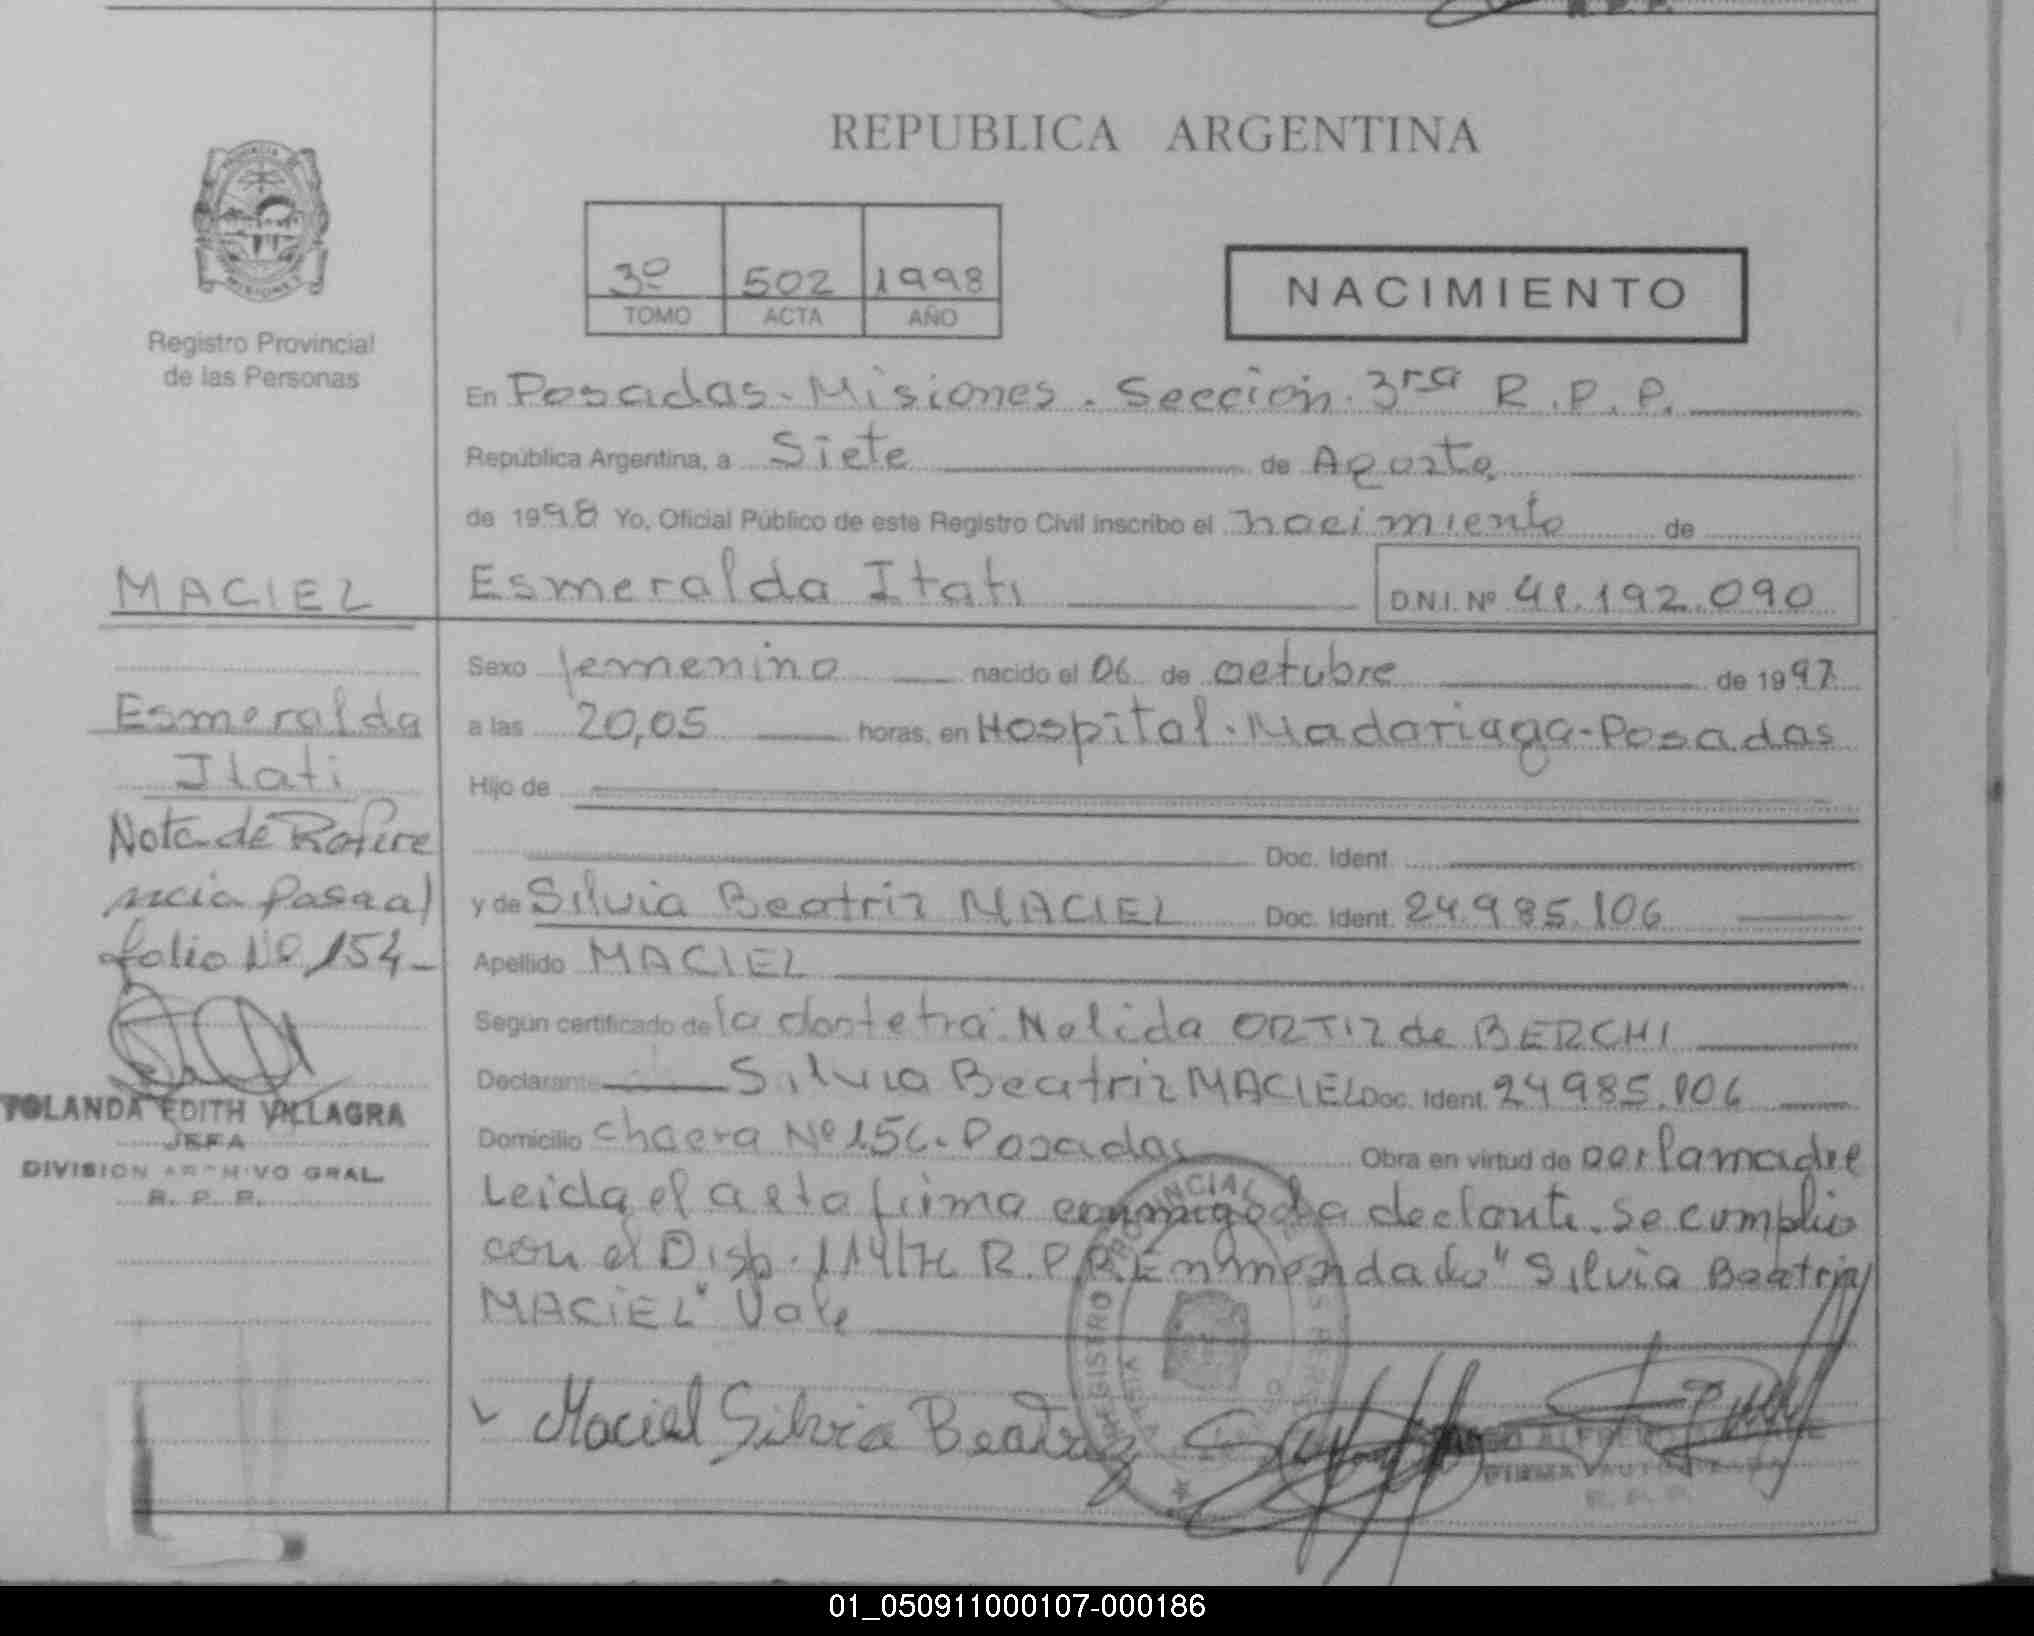 REPUBLICA ARGENTINA
PROVINCIA
MISIONES
Registro Provincial
de las Personas
3º 502 1998
TOMO ACTA AÑO
NACIMIENTO
En Posadas - Misiones . Sección 3ra R.P.P.
República Argentina, a Siete de Agosto
de 1998 Yo, Oficial Público de este Registro Civil inscribo el nacimiento de
MACIEL
Esmeralda Itati
D.N.I. Nº 41.192.090
Sexo femenino nacido el 06 de octubre de 1997
Esmeralda
Itati
a las 20,05 horas, en Hospital - Madariaga - Posadas
Hijo de
Doc. Ident.
y de Silvia Beatriz MACIEL Doc. Ident. 24.985.106
Apellido MACIEL
Según certificado de la Nelida ORTIZ de BERCHI
Declarante Silvia Beatriz MACIEL Doc. Ident. 24985.106
Domicilio Nº 156 - Posadas Obra en virtud de ser la madre
Leida el acta firma conmigo la . Se cumplio
con el Disp. R.P.P. Enmendado "Silvia Beatriz
MACIEL" Vale
Nota de Refere
ncia Pasa al
folio Nº 154-
YOLANDA EDITH VILLAGRA
JEFA
DIVISION ARCHIVO GRAL.
R. P. P.
Maciel Silvia Beatriz
REGISTRO PROVINCIAL
ALFREDO
FIRMA AUTORIZADA
R. P. P.
01_050911000107-000186